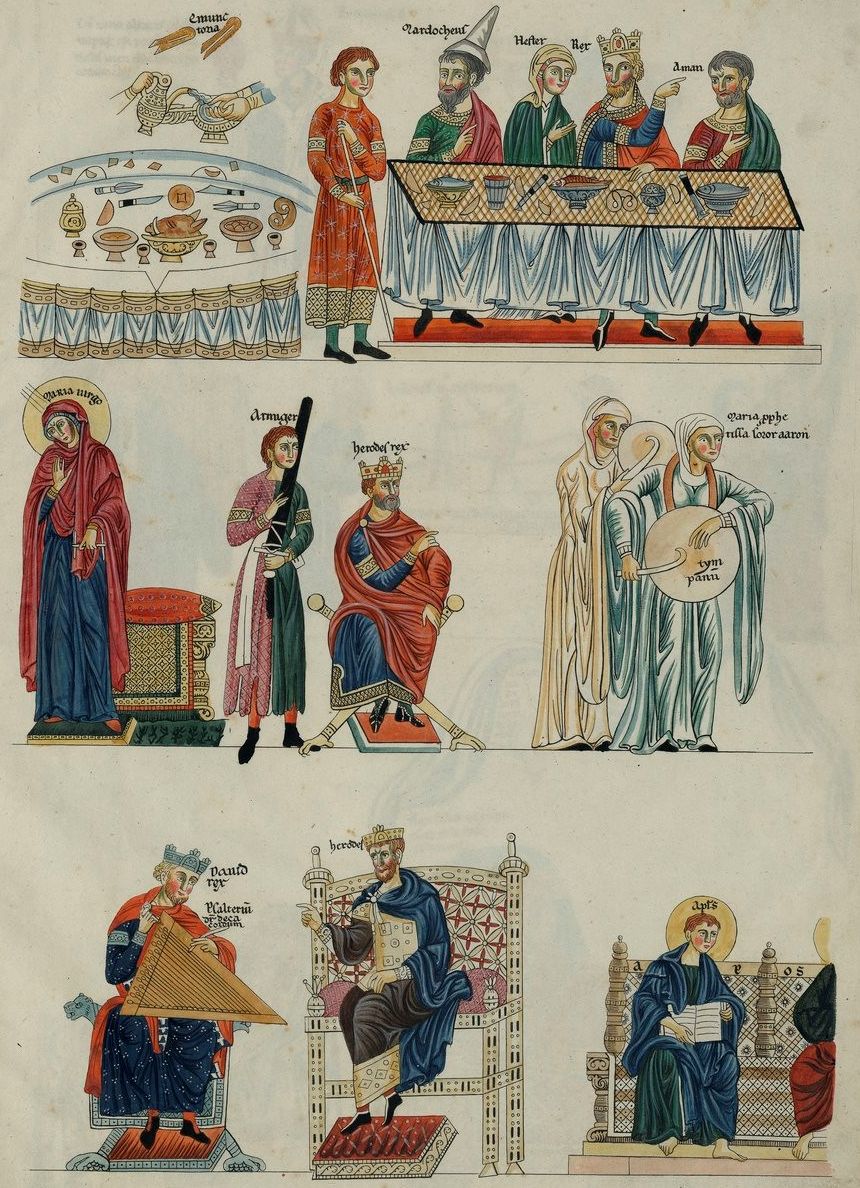 Emunc
toria
Mardocheus
Hester
Rex
Aman
Maria uirgo
Armiger
herodes rex
Maria pphe
tissa soror aaron
tym
panū
Dauid
rex
Psalteriū
dr deca
cordum
herodes
aptS
a P OS